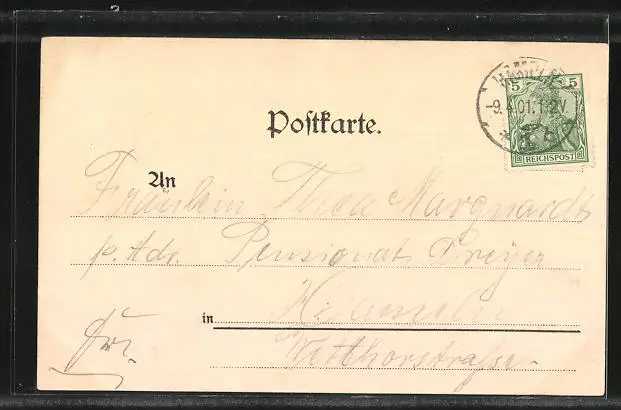 Postkarte.
5 5
-9.4.01. 1-2V
REICHSPOST
An
Fräulein Thea Marquardt
p. Adr. Pensionat Dreyer
in Hameln
Wettborstrasse